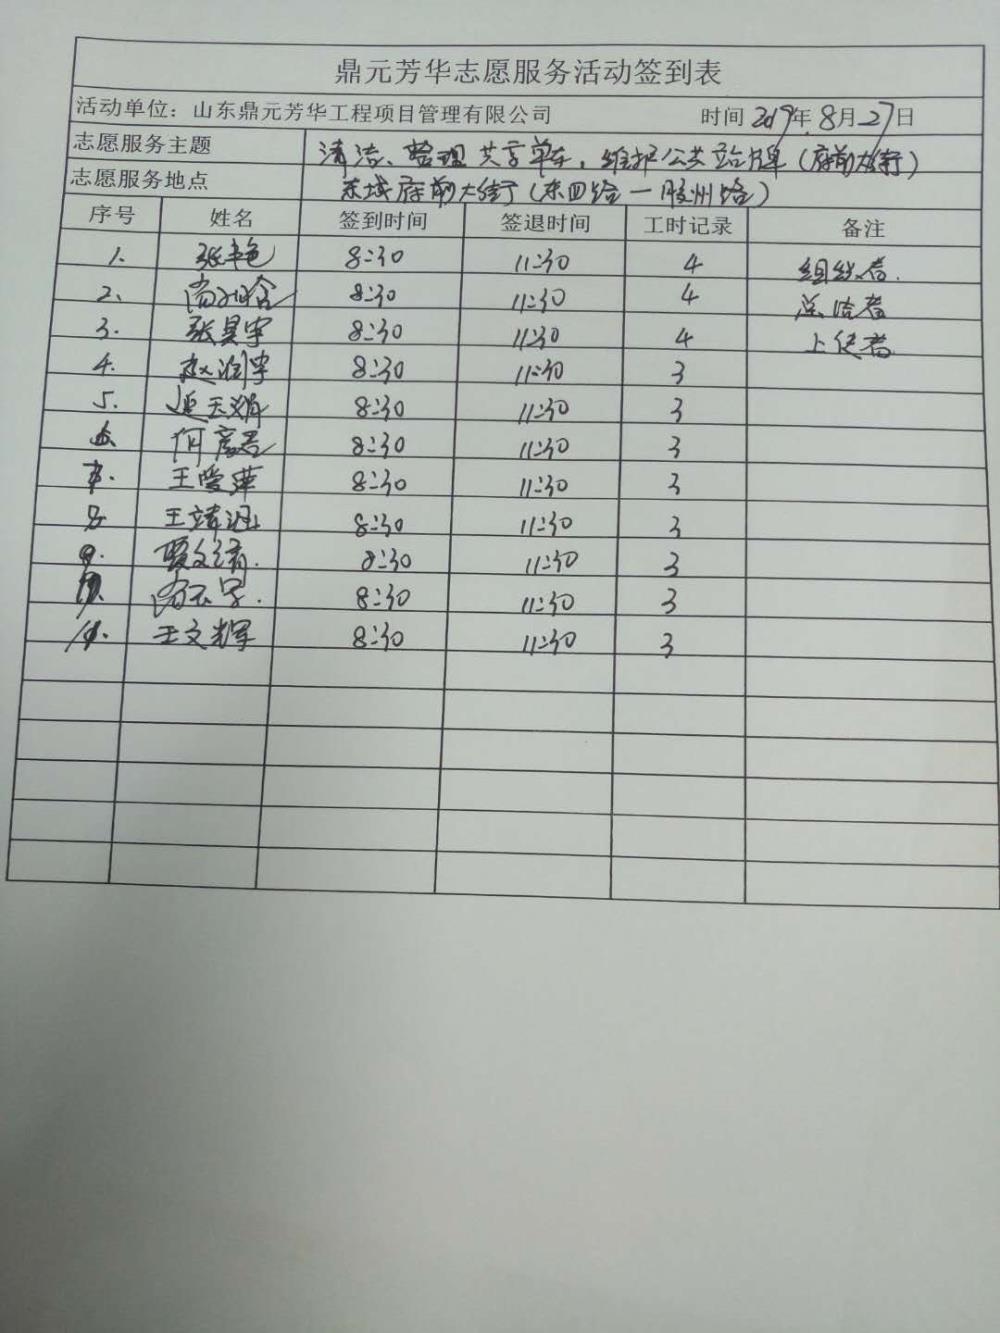 鼎元芳华志愿服务活动签到表
活动单位：山东鼎元芳华工程项目管理有限公司 时间 2019年 8月 27日
志愿服务主题 清洁、整理共享单车，维护公共站牌（府前大街）
志愿服务地点 东城府前大街（东四路—胶州路）
序号 姓名 签到时间 签退时间 工时记录 备注
1. 张艳 8:30 11:30 4 组织者.
2、 8:30 11:30 4 总结者
3. 张昊宇 8:30 11:30 4 上传者
4. 赵润宇 8:30 11:30 3
5. 延玉娟 8:30 11:30 3
6. 何彦君 8:30 11:30 3
7. 王爱萍 8:30 11:30 3
8 王靖涵 8:30 11:30 3
9. 贾文清. 8:30 11:30 3
10. 8:30 11:30 3
11. 王文辉 8:30 11:30 3